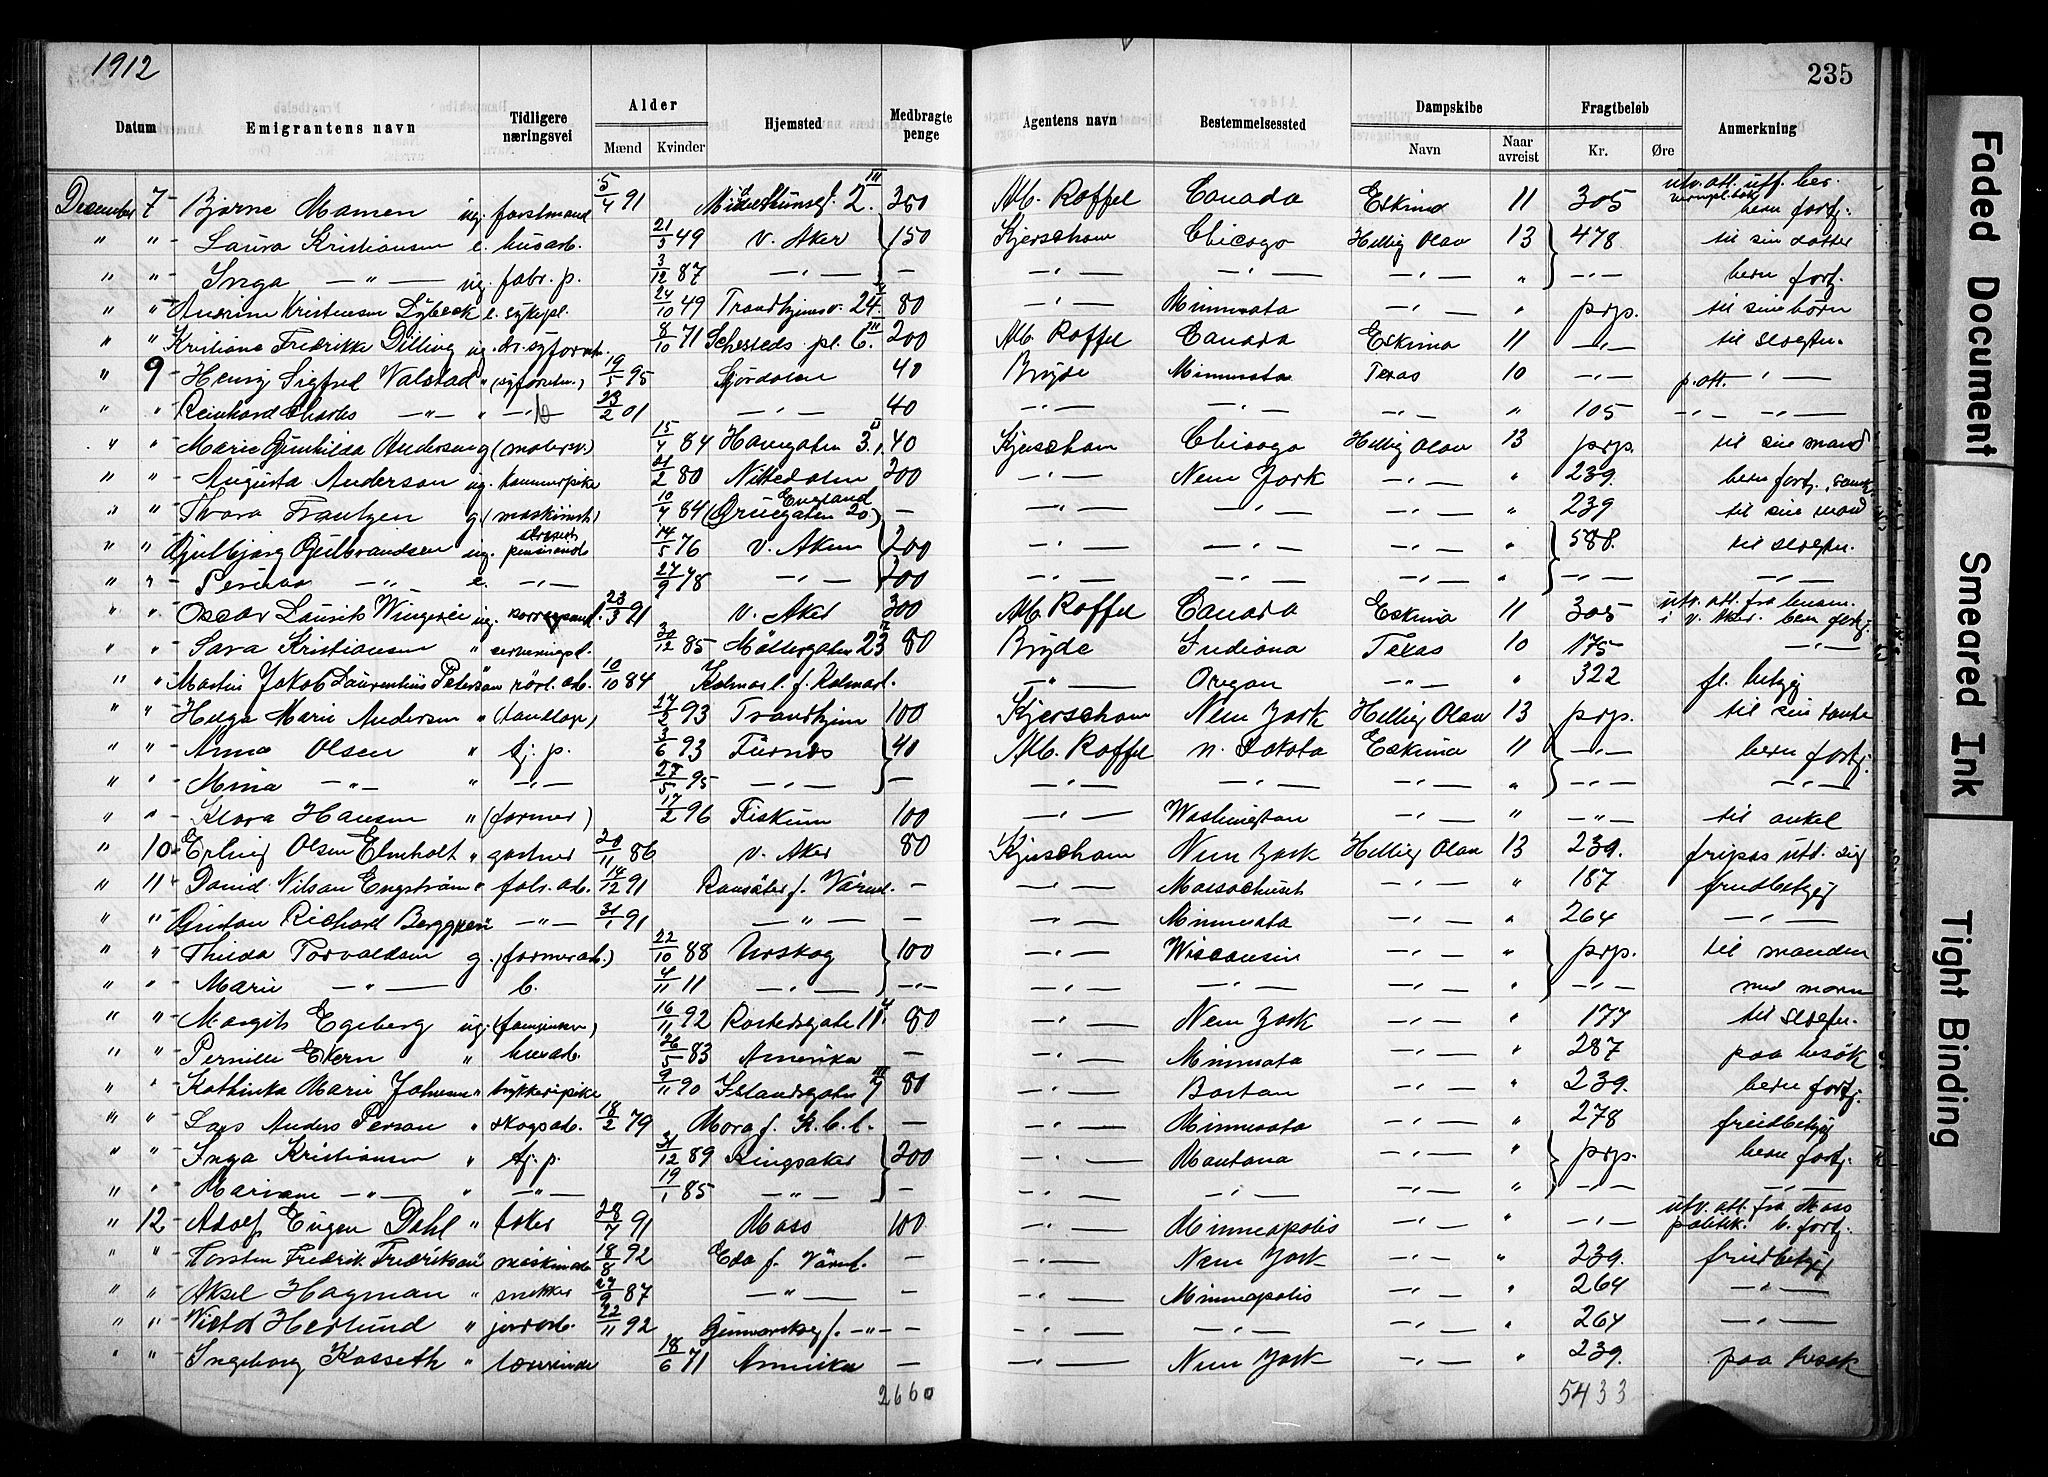 1912
235
Datum Emigrantens navn Tidligere næringsvei Alder Mænd Kvinder Hjemsted Medbragte penge Agentens navn Bestemmelsessted Dampskibe Navn Naar avreist Fragtbeløb Kr. Øre Anmerkning
utv. att. utf. ber.
December 7 Bjarne Mamen ug. forstmand 5/4 91 2. III 350 Mb. Roffel Canada Eskimo 11 305 bern fortj.
" " Laura Kristiansen e. husarb. 21/3 49 V. Aker 150 Kjerscham Chicago Hellig Olav 13 478 til sin datter
" " Inga —"— ug. fabr. p. 3/12 87 —"— — —"— —"— —"— " —"— bern fortj.
" " Kristensen Lybeck e. sykepl. 24/10 49 Trondhjemsv. 24. 80 —"— Minnesota —"— " prp. til sine børn
" " Kristiane Fredrikke Dilling ug. 8/10 71 Schesteds pl. 6. III 200 Mb. Roffel Canada Eskimo 11 —"— til slegtn.
" 9 Henry Sigfred Valstad " 19/5 95 Stjørdalen 40 Bryde Minnesota Texas 10 —"— p. att. —"—
" " Reinhard Charles —"— " —"— 23/2 01 —"— 40 —"— —"— —"— " 105 —"— —"—
" " Marie Gunhilda Anderson g. 15/4 84 Havnegaten 3. II 40 Kjerscham Chicago Hellig Olav 13 prp. til sin mand
" " Augusta Anderson ug. kammerpike 21/2 80 Nittedalen 200 —"— New York —"— " 239. bern fortj.
" " Thora Frantzen g. (maskinist) 10/7 84 England (Gruegaten 20) — —"— —"— —"— " 239 til sin mand
" " Gulbjørg Gulbrandsen ug. 14/5 76 V. Aker 200 —"— —"— —"— " 588. til slegtn.
" " —"— e. —"— 27/9 48 —"— 200 —"— —"— —"— " —"— —"—
" " Oscar Laurits ug. 23/3 91 V. Aker 300 Mb. Roffel Canada Eskimo 11 305 utv. att. fra lensm. i V. Aker. bern fortj.
" " Sara Kristiansen " serveringsp. 30/12 85 Møllergaten 23 80 Bryde Indiana Texas 10 175 —"—
" " Martin Jakob Laurentius Peterson " rørl. arb. 10/10 84 Kalmar l. f. Kalmar l. —"— Oregon —"— " 322 fl. betyg
" " Helga Marie Andersen " 17/2 93 Trondhjem 100 Kjerscham New York Hellig Olav 13 prp. til sin tante
" " Anna Olsen " tj. p. 3/6 93 Furnes 40 Mb. Roffel N. Dakota Eskimo 11 —"— bern fortj.
" " Mina —"— " —"— 27/5 95 —"— — —"— —"— —"— " —"— —"—
" " Klara Hansen " (farmer) 17/2 96 Fiskum 100 —"— Washington —"— " —"— til onkel
" 10 Erling Olsen Elmholt " gartner 20/11 86 V. Aker 80 Kjerscham New York Hellig Olav 13 239. fripas utv.
" 11 David Nilsson Engström " fabr. arb. 14/12 91 Ransäter f. Värml. — —"— Massachuset —"— " 187 freidbetyg
" " Gustav Richard Berggren " —"— 31/1 91 —"— — —"— Minnesota —"— " 264 —"—
" " Thilda Torvaldsen g. (farmerarb.) 22/10 88 Urskog 100 —"— Wisconsin —"— " prp. til manden
" " Marie —"— b. 4/11 11 —"— —"— —"— —"— —"— " med moren
" " Margit Egeberg ug. 16/11 92 Rostedsgate 11. 80 —"— New York —"— " 177 til slegtn.
" " Pernille Ekern " husarb. 26/5 83 Amerika — —"— Minnesota —"— " 287 paa besøk
" " Kathinka Marie Johnsen " trykkeripike 9/11 90 Islandsgaten 7 III 80 —"— Boston —"— " 239. bern fortj.
" " Lars Anders Persson " skogsarb. 18/2 79 Mora f. K. b. l. — —"— Minnesota —"— " 278 freidbetyg
" " Inga Kristiansen " tj. p. 31/12 89 Ringsaker 200 —"— Montana —"— " prp. bern fortj.
" " Mariane —"— " —"— 19/1 85 —"— — —"— —"— —"— " —"—
" 12 Adolf Eugen Dahl " 28/7 91 Moss 100 —"— Minneapolis —"— " —"— utv. att. fra Moss politik. b. fortj.
" " Torsten Fredrik Fredriksson " maskinarb. 18/8 92 Eda f. Värml. — —"— New York —"— " 239. freidbetyg
" " Aksel Hagman " snekker 27/9 87 —"— — —"— Minneapolis —"— " 264 —"—
" " Victor Herlund " jordarb. 22/11 92 Gunnarskog f. —"— — —"— —"— —"— " 264 —"—
" " Ingeborg Kasseth " lærerinde 18/6 71 Amerika — —"— New York —"— " 239. paa besøk
2660 5433
Faded Document
Smeared Ink
Tight Binding